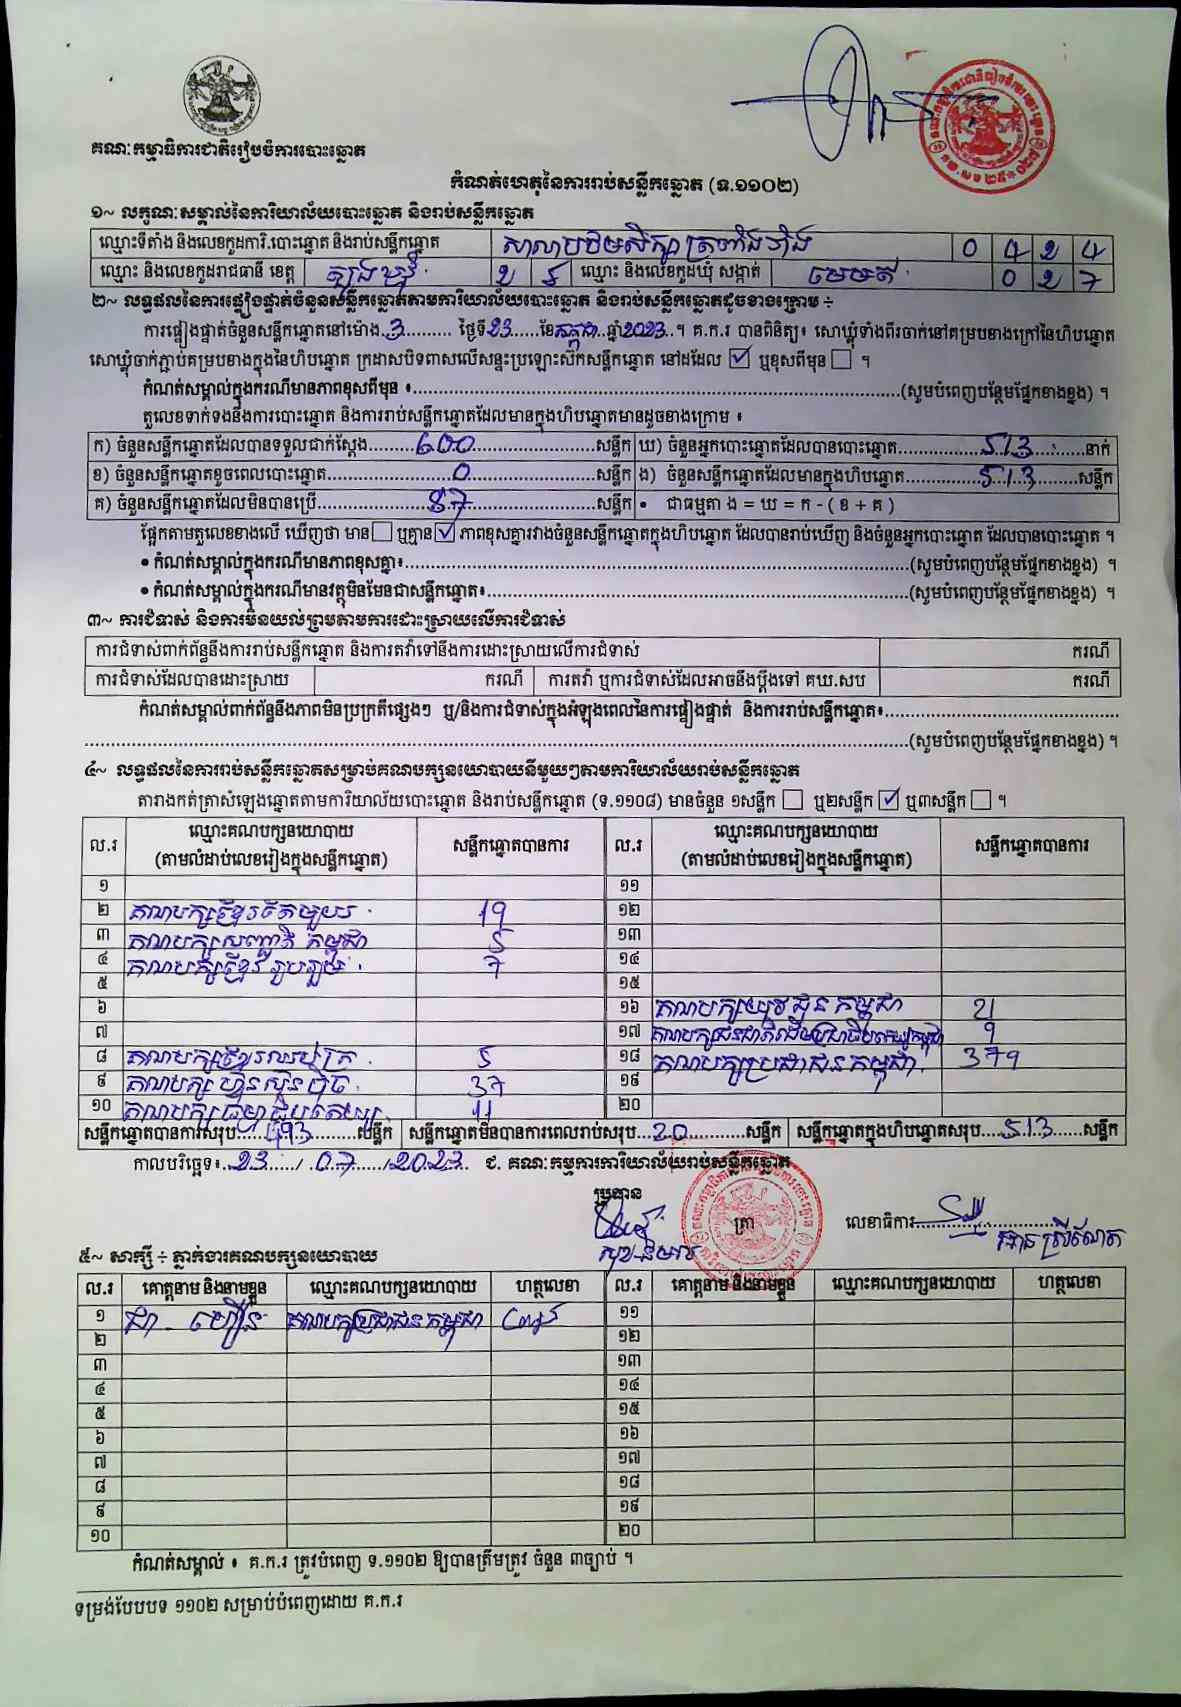 គណៈកម្មាធិការជាតិរៀបចំការបោះឆ្នោត
កំណត់ហេតុនៃការរាប់សន្លឹកឆ្នោត (ទ.១១០២)
១~ លក្ខណៈសម្គាល់នៃការិយាល័យបោះឆ្នោត និងរាប់សន្លឹកឆ្នោត
ឈ្មោះទីតាំង និងលេខកូដការិ.បោះឆ្នោត និងរាប់សន្លឹកឆ្នោត សាលាបឋមសិក្សា ត្រពាំង 0 4 2 4
ឈ្មោះ និងលេខកូដរាជធានី ខេត្ត ត្បូងឃ្មុំ 2 5 ឈ្មោះ និងលេខកូដឃុំ សង្កាត់ មេមត់ 0 2 7
២~ លទ្ធផលនៃការផ្ទៀងផ្ទាត់ចំនួនសន្លឹកឆ្នោតតាមការិយាល័យបោះឆ្នោត និងរាប់សន្លឹកឆ្នោតដូចខាងក្រោម ÷
ការផ្ទៀងផ្ទាត់ចំនួនសន្លឹកឆ្នោតនៅម៉ោង 3 ថ្ងៃទី 23 ខែ កក្កដា ឆ្នាំ 2023 ។ គ.ក.រ បានពិនិត្យ៖ សោឃ្លុំទាំងពីរចាក់នៅគម្របខាងក្រៅនៃហិបឆ្នោត
សោឃ្លុំចាក់ភ្ជាប់គម្របខាងក្នុងនៃហិបឆ្នោត ក្រដាសបិទពាសលើសន្ទះប្រឡោះស៊កសន្លឹកឆ្នោត នៅដដែល ☑ ឬខុសពីមុន ☐ ។
កំណត់សម្គាល់ក្នុងករណីមានភាពខុសពីមុន ៖ (សូមបំពេញបន្ថែមផ្នែកខាងខ្នង) ។
តួលេខទាក់ទងនឹងការបោះឆ្នោត និងការរាប់សន្លឹកឆ្នោតដែលមានក្នុងហិបឆ្នោតមានដូចខាងក្រោម ៖
ក) ចំនួនសន្លឹកឆ្នោតដែលបានទទួលជាក់ស្តែង 600 សន្លឹក ឃ) ចំនួនអ្នកបោះឆ្នោតដែលបានបោះឆ្នោត 513 នាក់
ខ) ចំនួនសន្លឹកឆ្នោតខូចពេលបោះឆ្នោត 0 សន្លឹក ង) ចំនួនសន្លឹកឆ្នោតដែលមានក្នុងហិបឆ្នោត 513 សន្លឹក
គ) ចំនួនសន្លឹកឆ្នោតដែលមិនបានប្រើ 87 សន្លឹក • ជាធម្មតា ង = ឃ = ក - ( ខ + គ )
ផ្អែកតាមតួលេខខាងលើ ឃើញថា មាន ☐ ឬគ្មាន ☑ ភាពខុសគ្នារវាងចំនួនសន្លឹកឆ្នោតក្នុងហិបឆ្នោត ដែលបានរាប់ឃើញ និងចំនួនអ្នកបោះឆ្នោត ដែលបានបោះឆ្នោត ។
• កំណត់សម្គាល់ក្នុងករណីមានភាពខុសគ្នា៖ (សូមបំពេញបន្ថែមផ្នែកខាងខ្នង) ។
• កំណត់សម្គាល់ក្នុងករណីមានវត្ថុមិនមែនជាសន្លឹកឆ្នោត៖ (សូមបំពេញបន្ថែមផ្នែកខាងខ្នង) ។
៣~ ការជំទាស់ និងការមិនយល់ព្រមតាមការដោះស្រាយលើការជំទាស់
ការជំទាស់ពាក់ព័ន្ធនឹងការរាប់សន្លឹកឆ្នោត និងការតវ៉ាទៅនឹងការដោះស្រាយលើការជំទាស់ ករណី
ការជំទាស់ដែលបានដោះស្រាយ ករណី ការតវ៉ា ឬការជំទាស់ដែលអាចនឹងប្តឹងទៅ គឃ.សប ករណី
កំណត់សម្គាល់ពាក់ព័ន្ធនឹងភាពមិនប្រក្រតីផ្សេងៗ ឬ/និងការជំទាស់ក្នុងអំឡុងពេលនៃការផ្ទៀងផ្ទាត់ និងការរាប់សន្លឹកឆ្នោត៖
(សូមបំពេញបន្ថែមផ្នែកខាងខ្នង) ។
៤~ លទ្ធផលនៃការរាប់សន្លឹកឆ្នោតសម្រាប់គណបក្សនយោបាយនីមួយៗតាមការិយាល័យរាប់សន្លឹកឆ្នោត
តារាងកត់ត្រាសំឡេងឆ្នោតតាមការិយាល័យបោះឆ្នោត និងរាប់សន្លឹកឆ្នោត (ទ.១១០៨) មានចំនួន ១សន្លឹក ☐ ឬ២សន្លឹក ☑ ឬ៣សន្លឹក ☐ ។
ល.រ ឈ្មោះគណបក្សនយោបាយ (តាមលំដាប់លេខរៀងក្នុងសន្លឹកឆ្នោត) សន្លឹកឆ្នោតបានការ ល.រ ឈ្មោះគណបក្សនយោបាយ (តាមលំដាប់លេខរៀងក្នុងសន្លឹកឆ្នោត) សន្លឹកឆ្នោតបានការ
១ ១១
២ គណបក្សខ្មែរតែមួយ 19 ១២
៣ គណបក្សសញ្ជាតិ កម្ពុជា 5 ១៣
៤ គណបក្សខ្មែររួបរួម 7 ១៤
៥ ១៥
៦ ១៦ គណបក្សយុវជនកម្ពុជា 21
៧ ១៧ គណបក្សជនជាតិដើមប្រជាធិបតេយ្យកម្ពុជា 9
៨ គណបក្សខ្មែរឈប់ក្រ 5 ១៨ គណបក្សប្រជាជនកម្ពុជា 379
៩ គណបក្ស ហ្វ៊ុនស៊ិនប៉ិច 37 ១៩
១០ គណបក្ស ធម្មាធិបតេយ្យ 11 ២០
សន្លឹកឆ្នោតបានការសរុប 493 សន្លឹក សន្លឹកឆ្នោតមិនបានការពេលរាប់សរុប 20 សន្លឹក សន្លឹកឆ្នោតក្នុងហិបឆ្នោតសរុប 513 សន្លឹក
កាលបរិច្ឆេទ៖ 23 / 07 / 2023 ជ. គណៈកម្មការការិយាល័យរាប់សន្លឹកឆ្នោត
ប្រធាន ត្រា លេខាធិការ
៥~ សាក្សី ÷ ភ្នាក់ងារគណបក្សនយោបាយ
ល.រ គោត្តនាម និងនាមខ្លួន ឈ្មោះគណបក្សនយោបាយ ហត្ថលេខា ល.រ គោត្តនាម និងនាមខ្លួន ឈ្មោះគណបក្សនយោបាយ ហត្ថលេខា
១ ជា ហឿន គណបក្សប្រជាជនកម្ពុជា ១១
២ ១២
៣ ១៣
៤ ១៤
៥ ១៥
៦ ១៦
៧ ១៧
៨ ១៨
៩ ១៩
១០ ២០
កំណត់សម្គាល់ ៖ គ.ក.រ ត្រូវបំពេញ ទ.១១០២ ឱ្យបានត្រឹមត្រូវ ចំនួន ៣ច្បាប់ ។
ទម្រង់បែបបទ ១១០២ សម្រាប់បំពេញដោយ គ.ក.រ